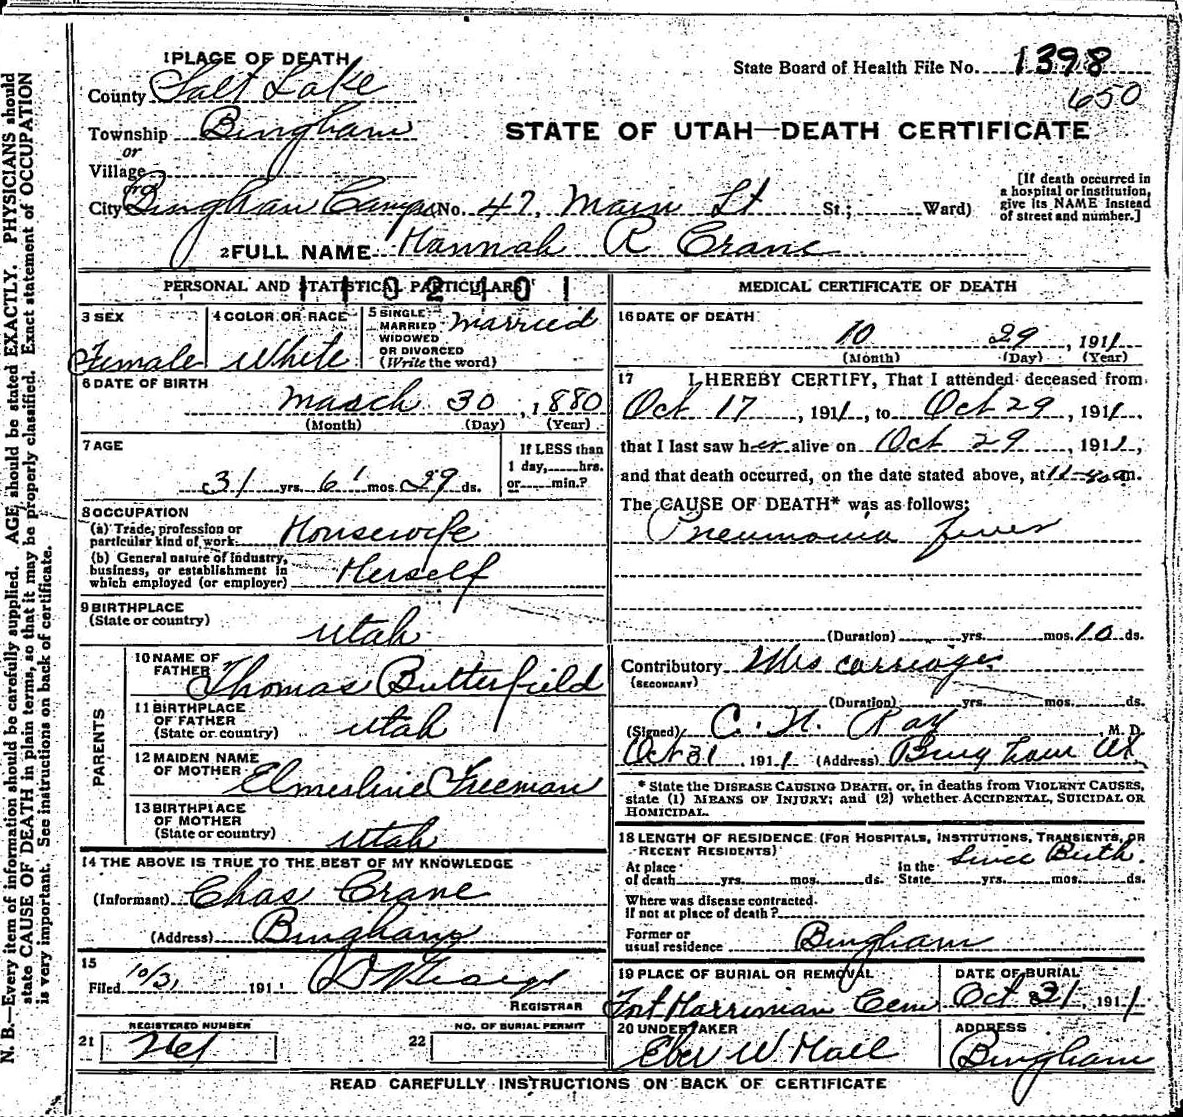 1 PLACE OF DEATH
County Salt Lake
Township Bingham
or
Village
or
City Bingham Camp No. 47, Main St St.; Ward)
State Board of Health File No. 1398
650
STATE OF UTAH—DEATH CERTIFICATE
[If death occurred in
a hospital or institution,
give its NAME instead
of street and number.]
2 FULL NAME Hannah R Crane
PERSONAL AND STATISTICAL PARTICULARS
1102401
3 SEX
Female
4 COLOR OR RACE
White
5 SINGLE
MARRIED
WIDOWED
OR DIVORCED
(Write the word)
Married
6 DATE OF BIRTH
March 30, 1880
(Month) (Day) (Year)
7 AGE
31 yrs. 6 mos. 29 ds.
If LESS than
1 day, hrs.
or min.?
8 OCCUPATION
(a) Trade, profession or
particular kind of work Housewife
(b) General nature of industry,
business, or establishment in
which employed (or employer) Herself
9 BIRTHPLACE
(State or country)
Utah
PARENTS
10 NAME OF
FATHER Thomas Butterfield
11 BIRTHPLACE
OF FATHER
(State or country) Utah
12 MAIDEN NAME
OF MOTHER Elmerline Freeman
13 BIRTHPLACE
OF MOTHER
(State or country) Utah
14 THE ABOVE IS TRUE TO THE BEST OF MY KNOWLEDGE
(Informant) Chas Crane
(Address) Bingham
15
Filed 10/31 1911
REGISTRAR
21 REGISTERED NUMBER
22 NO. OF BURIAL PERMIT
MEDICAL CERTIFICATE OF DEATH
16 DATE OF DEATH
10 29, 1911
(Month) (Day) (Year)
17 I HEREBY CERTIFY, That I attended deceased from
Oct 17, 1911, to Oct 29, 1911,
that I last saw her alive on Oct 29, 1911,
and that death occurred, on the date stated above, at m.
The CAUSE OF DEATH* was as follows:
Pneumonia fever
(Duration) yrs. mos. 10 ds.
Contributory Miscarriage
(SECONDARY)
(Duration) yrs. mos. ds.
(Signed) C. N. Ray M. D.
Oct 31 1911 (Address) Bingham Ut
* State the DISEASE CAUSING DEATH, or, in deaths from VIOLENT CAUSES,
state (1) MEANS OF INJURY; and (2) whether ACCIDENTAL, SUICIDAL OR
HOMICIDAL.
18 LENGTH OF RESIDENCE (FOR HOSPITALS, INSTITUTIONS, TRANSIENTS, OR
RECENT RESIDENTS)
At place
of death yrs. mos. ds.
In the
State yrs. mos. ds.
Since Birth.
Where was disease contracted
if not at place of death?
Former or
usual residence Bingham
19 PLACE OF BURIAL OR REMOVAL
Fort Harriman Cem
DATE OF BURIAL
Oct 31, 1911
20 UNDERTAKER
Eber W Hall
ADDRESS
Bingham
READ CAREFULLY INSTRUCTIONS ON BACK OF CERTIFICATE
N. B.—Every item of information should be carefully supplied. AGE should be stated EXACTLY. PHYSICIANS should
state CAUSE OF DEATH in plain terms, so that it may be properly classified. Exact statement of OCCUPATION
is very important. See instructions on back of certificate.